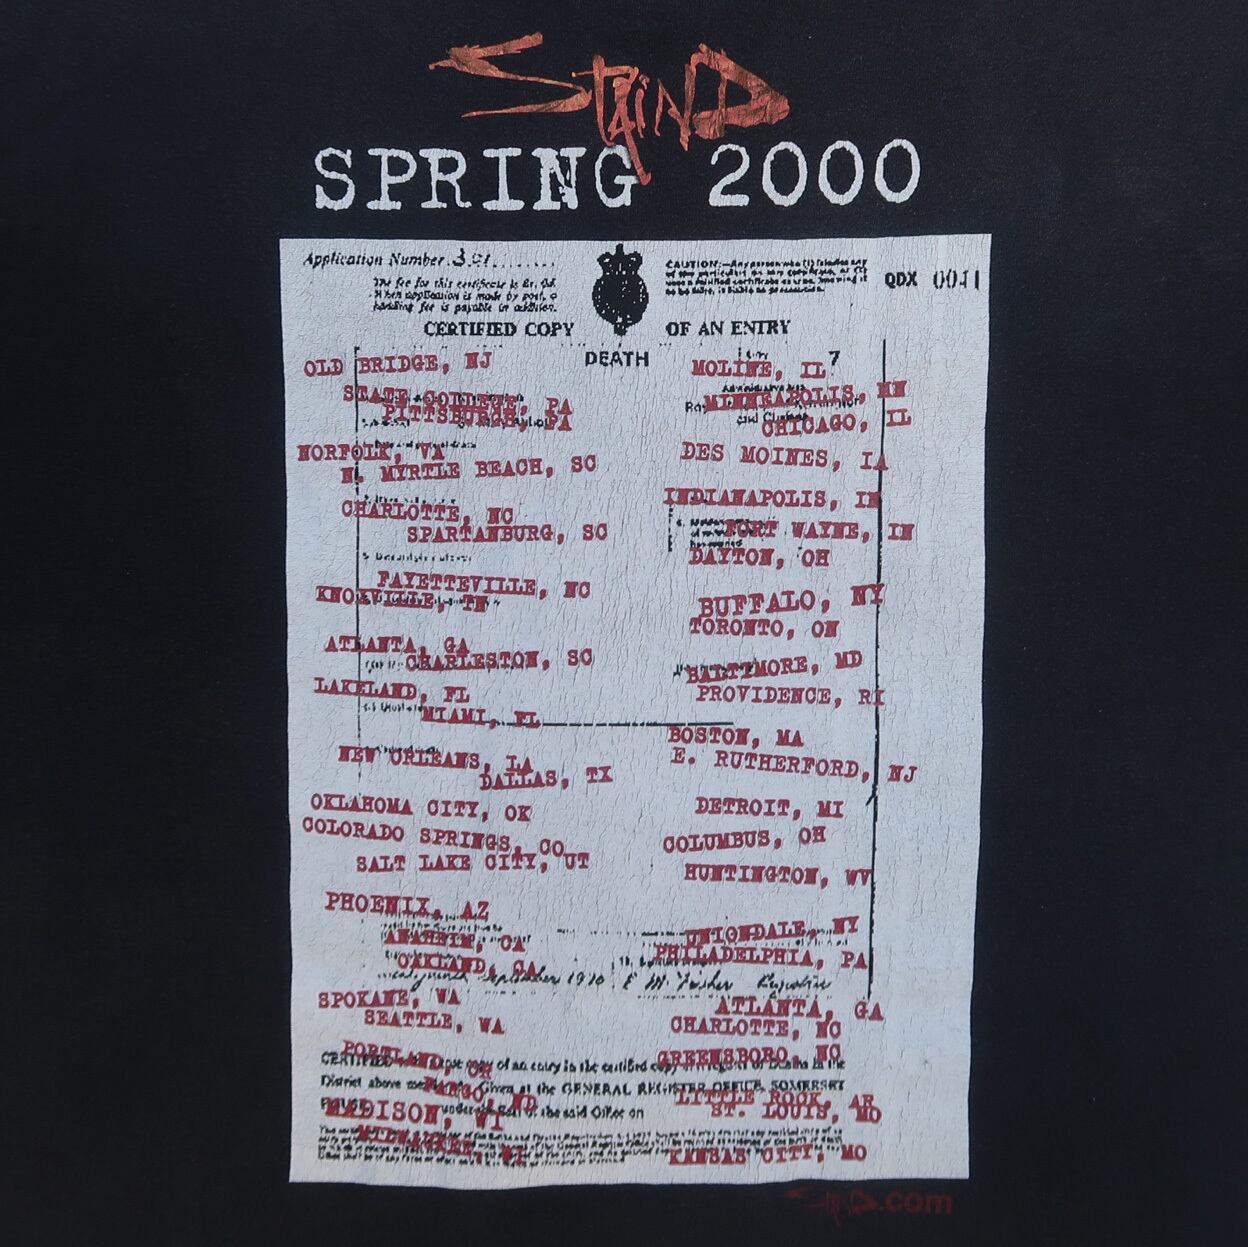 STAIND
SPRING 2000
Application Number 301
The fee for this certificate is
When application is made by post, a
handling fee is payable in addition.
CAUTION:—Any person who (1) falsifies any
of the particulars on this certificate, or (2)
uses a falsified certificate as true, knowing it
to be false, is liable to prosecution.
QDX 0041
CERTIFIED COPY OF AN ENTRY
DEATH
OLD BRIDGE, NJ
STATE COLLEGE, PA
PITTSBURGH, PA
NORFOLK, VA
N. MYRTLE BEACH, SC
CHARLOTTE, NC
SPARTANBURG, SC
FAYETTEVILLE, NC
KNOXVILLE, TN
ATLANTA, GA
CHARLESTON, SC
LAKELAND, FL
MIAMI, FL
NEW ORLEANS, LA
DALLAS, TX
OKLAHOMA CITY, OK
COLORADO SPRINGS, CO
SALT LAKE CITY, UT
PHOENIX, AZ
ANAHEIM, CA
OAKLAND, CA
SPOKANE, WA
SEATTLE, WA
PORTLAND, OR
FARGO, ND
MADISON, WI
MILWAUKEE, WI
MOLINE, IL
7
MINNEAPOLIS, MN
CHICAGO, IL
DES MOINES, IA
INDIANAPOLIS, IN
FORT WAYNE, IN
DAYTON, OH
BUFFALO, NY
TORONTO, ON
BALTIMORE, MD
PROVIDENCE, RI
BOSTON, MA
E. RUTHERFORD, NJ
DETROIT, MI
COLUMBUS, OH
HUNTINGTON, WV
UNIONDALE, NY
PHILADELPHIA, PA
September 1970
ATLANTA, GA
CHARLOTTE, NC
GREENSBORO, NC
LITTLE ROCK, AR
ST. LOUIS, MO
KANSAS CITY, MO
CERTIFIED copy of an entry in the certified copy
District above Given at the GENERAL REGISTER OFFICE, SOMERSET
under the Seal of the said Office on
STAIND.com